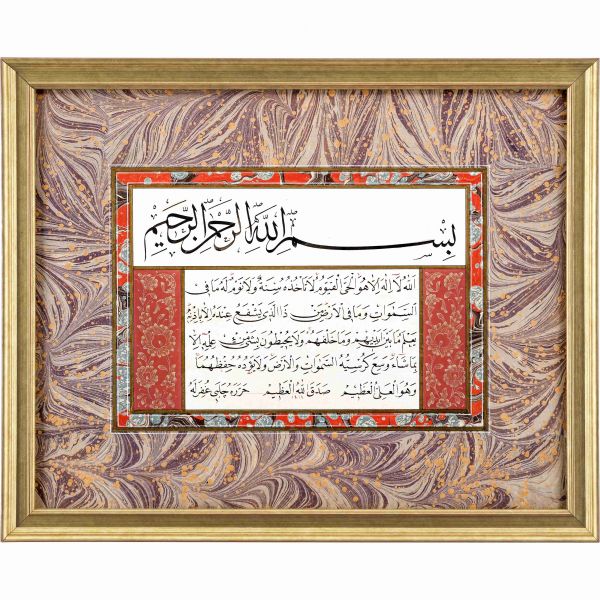 بِسْمِ اللهِ الرَّحْمٰنِ الرَّحِيمِ
اَللهُ لَا اِلٰهَ اِلَّا هُوَ الْحَيُّ الْقَيُّومُ لَا تَأْخُذُهُ سِنَةٌ وَلَا نَوْمٌ لَهُ مَا فِي
السَّمٰوَاتِ وَمَا فِي الْاَرْضِ مَنْ ذَا الَّذِي يَشْفَعُ عِنْدَهُ اِلَّا بِاِذْنِهِ
يَعْلَمُ مَا بَيْنَ اَيْدِيهِمْ وَمَا خَلْفَهُمْ وَلَا يُحِيطُونَ بِشَيْءٍ مِنْ عِلْمِهِ اِلَّا
بِمَا شَاءَ وَسِعَ كُرْسِيُّهُ السَّمٰوَاتِ وَالْاَرْضَ وَلَا يَؤُدُهُ حِفْظُهُمَا
وَهُوَ الْعَلِيُّ الْعَظِيمُ صَدَقَ اللهُ الْعَظِيمُ حَرَّرَهُ چلبي غُفِرَ لَهُ